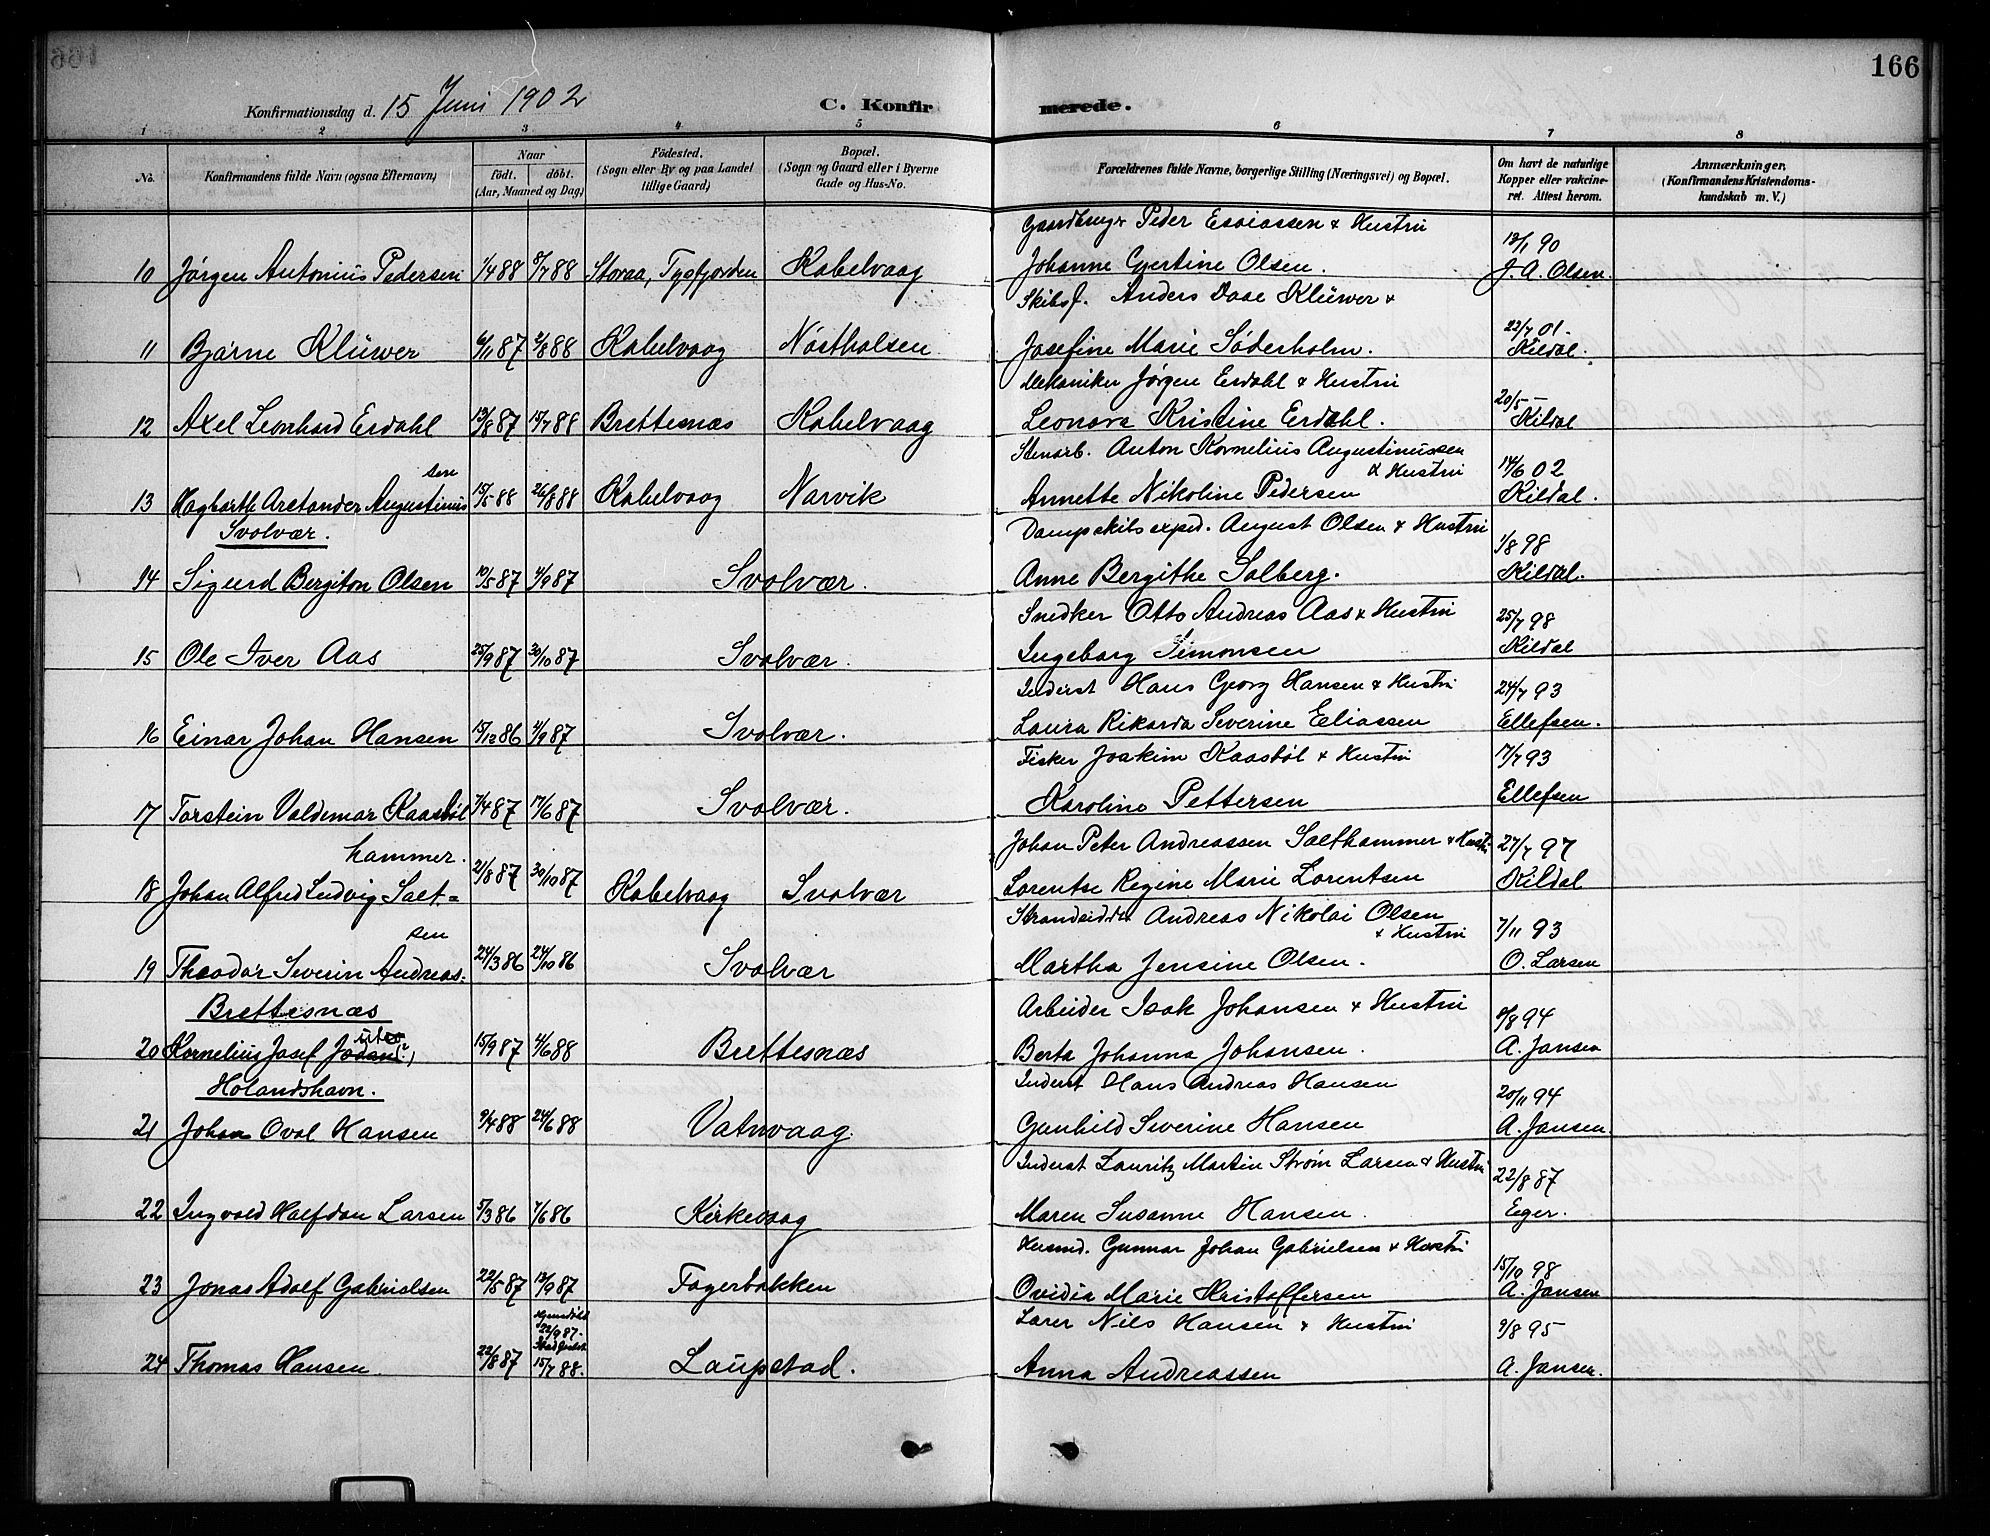 166
Konfirmationsdag d. 15 Juni 1902
C. Konfirmerede.
1 2 3 4 5 6 7 8
No.
Konfirmandens fulde Navn (ogsaa Efternavn)
Naar
født. døbt.
(Aar, Maaned og Dag)
Fødested.
(Sogn eller By og paa Landet
tillige Gaard)
Bopæl.
(Sogn og Gaard eller i Byerne
Gade og Hus-No.
Forældrenes fulde Navne, borgerlige Stilling (Næringsvei) og Bopæl.
Om havt de naturlige
Kopper eller vakcine-
ret. Attest herom.
Anmærkninger,
(Konfirmandens Kristendoms-
kundskab m. V.)
Gaardbruger Peder Esaiassen & Hustru
10 Jørgen Antonius Pedersen 1/4 88 8/7 88 Storaa, Tysfjorden Kabelvaag Johanne Gjertine Olsen. 12/1 90 J. A. Olsen.
Skibsf. Anders Daae Klüwer &
11 Bjarne Klüwer 6/11 87 2/8 88 Kabelvaag Nøstholsen Josefine Marie Søderholm. 22/7 01. Kildal.
Mekaniker Jørgen Erdahl & Hustru
12 Axel Leonhard Erdahl 13/8 87 15/7 88 Brettesnæs Kabelvaag Leonora Kristine Erdahl. 20/5 – Kildal
Stenarb. Anton Kornelius Augustinussen
& Hustru
13 Hagbarth Aretander Augustinussen 15/5 88 26/8 88 Kabelvaag Narvik Annette Nikoline Pedersen 14/6 02 Kildal.
Svolvær.
Dampskibsexped. August Olsen & Hustru
14 Sigurd Bergiton Olsen 10/5 87 4/9 87 Svolvær. Anne Bergithe Solberg. 1/8 98 Kildal.
Snedker Otto Andreas Aas & Hustru
15 Ole Iver Aas 25/9 87 30/10 87 Svolvær. Ingeborg Simonsen 25/7 98 Kildal
Inderst Hans Georg Hansen & Hustru
16 Einar Johan Hansen 15/12 86 4/9 87 Svolvær. Laura Rikarda Severine Eliassen 24/7 93 Ellefsen.
Fisker Joakim Kaasbøl & Hustru
17 Torstein Valdemar Kaasbøl 7/4 87 17/6 87 Svolvær. Karoline Pettersen 17/7 93 Ellefsen
Johan Peter Andreassen Salthammer & Hustru
18 Johan Alfred Ludvig Salt=hammer. 21/8 87 30/10 87 Kabelvaag Svolvær Lorentse Regine Marie Lorentsen 27/7 97 Kildal
Strandsidder Andreas Nikolai Olsen
& Hustru
19 Theodor Severin Andreassen 24/3 86 24/10 86 Svolvær Martha Jensine Olsen. 7/11 93 O. Larsen
Brettesnæs
Arbeider Isak Johansen & Hustru
20 Kornelius Josef 15/9 87 4/6 88 Brettesnæs Berta Johanna Johansen. 8/8 94 A. Jansen
Holandshavn.
Inderst Hans Andreas Hansen
21 Johan Oval Hansen 9/4 88 24/6 88 Vatnvaag. Gunhild Severine Hansen 20/11 94 A. Jansen.
Inderst Lauritz Martin Strøm Larsen & Hustru
22 Ingvald Halfdan Larsen 5/3 86 7/6 86 Kirkevaag Maren Susanne Hansen. 22/8 87 Eger.
Husmd. Gunnar Johan Gabrielsen & Hustru
23 Jonas Adolf Gabrielsen 22/5 87 13/9 87 Fagerbakken Ovidia Marie Kristoffersen 15/10 98 A. Jansen
Lærer Nils Hansen & Hustru
24 Thomas Hansen. 22/8 87 Hjemdøbt 22/9 87. Stadfæstet 15/7 88. Laupstad. Anna Andreassen 9/8 95 A. Jansen.